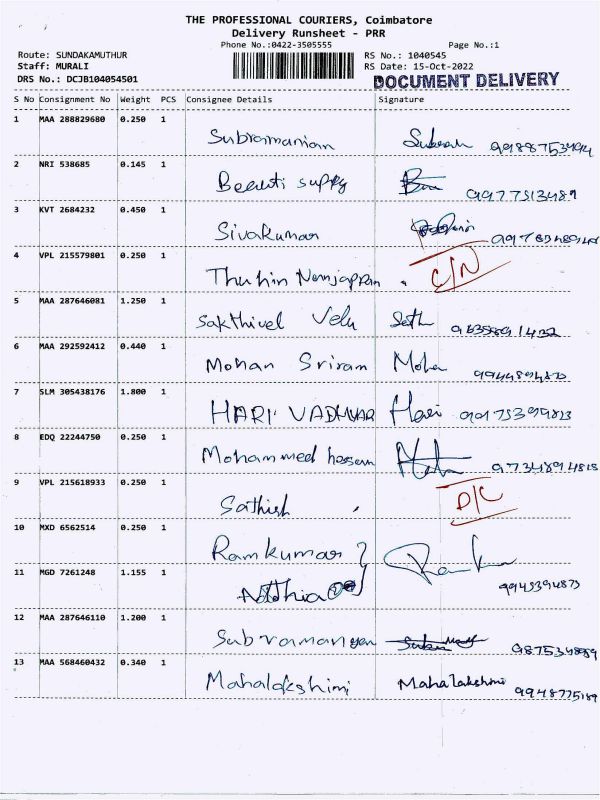 THE PROFESSIONAL COURIERS, Coimbatore
Delivery Runsheet - PRR
Phone No.:0422-3505555 Page No.:1
Route: SUNDAKAMUTHUR RS No.: 1040545
Staff: MURALI RS Date: 15-Oct-2022
DRS No.: DCJB104054501 DOCUMENT DELIVERY
S No Consignment No Weight PCS Consignee Details Signature
1 MAA 288829680 0.250 1
Subramanian
2 NRI 538685 0.145 1
9977513489
3 KVT 2684232 0.450 1
Sivakumar
4 VPL 215579801 0.250 1
C/N
5 MAA 287646081 1.250 1
Sakthivel Velu
6 MAA 292592412 0.440 1
Mohan Sriram
7 SLM 305438176 1.800 1
HARI Hari
8 EDQ 22244750 0.250 1
Mohammed
9 VPL 215618933 0.250 1
Sathish D/C
10 MXD 6562514 0.250 1
Ramkumar
11 MGD 7261248 1.155 1
9945394873
12 MAA 287646110 1.200 1
13 MAA 568460432 0.340 1
Mahalakshimi Mahalakshmi 9948775189